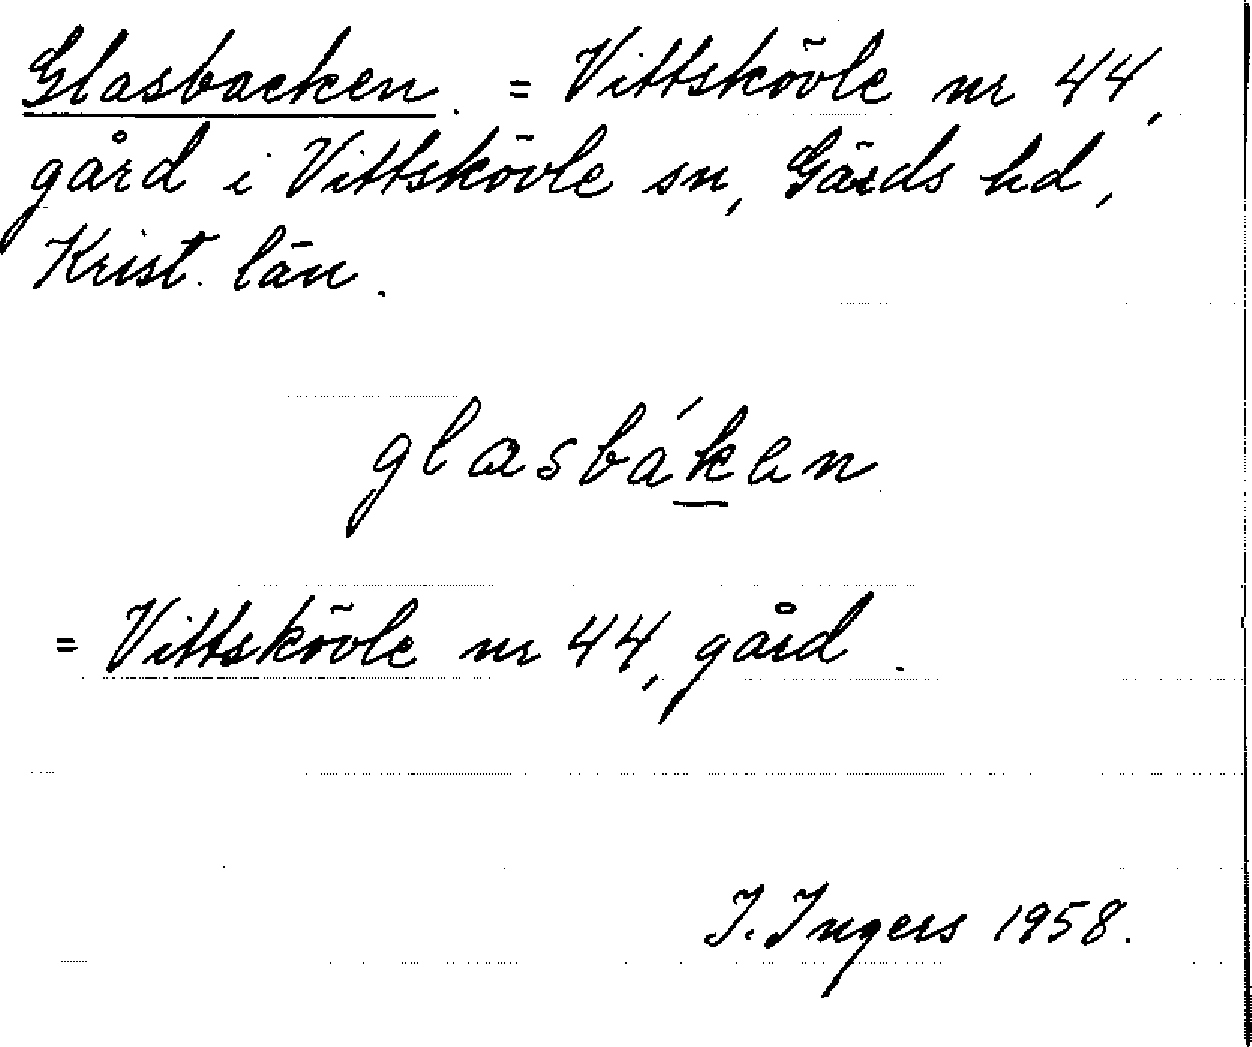 Glasbacken. = Vittskövle nr 44,
gård i Vittskövle sn, Gärds hd,
Krist. län.
glasbáken
= Vittskövle nr 44, gård.
I. Ingers 1958.